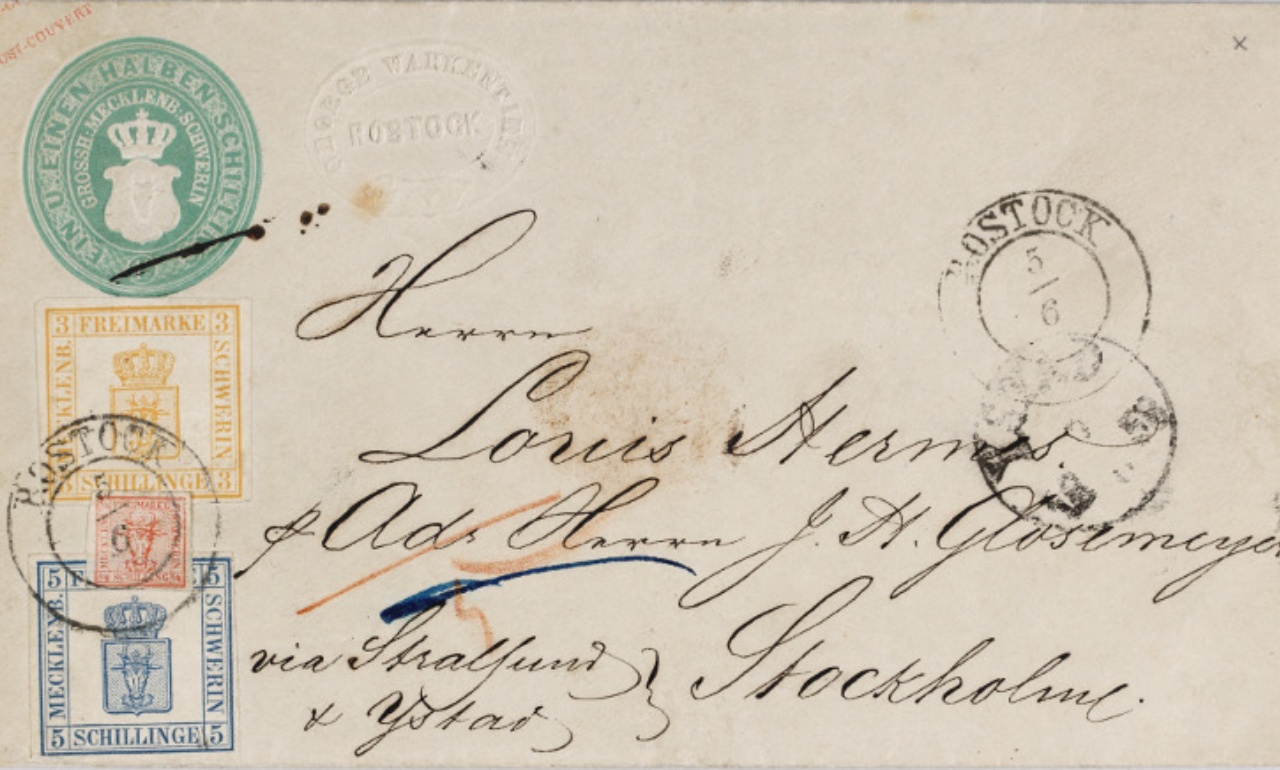 POST-COUVERT
EIN U. EINEN HALBEN SCHILLING
GROSSH. MECKLENB. SCHWERIN
GEORGE WARKENTIEN
ROSTOCK
ROSTOCK
5/6
YSTAD
3 FREIMARKE 3
MECKLENB.
SCHWERIN
3 SCHILLINGE 3
ROSTOCK
5/6
5 5
MECKLENB.
SCHWERIN
5 SCHILLINGE 5
Herrn
Louis Hermes.
p Adr Herrn J. H. Glosemeyer
via Stralsund
& Ystad
Stockholm.